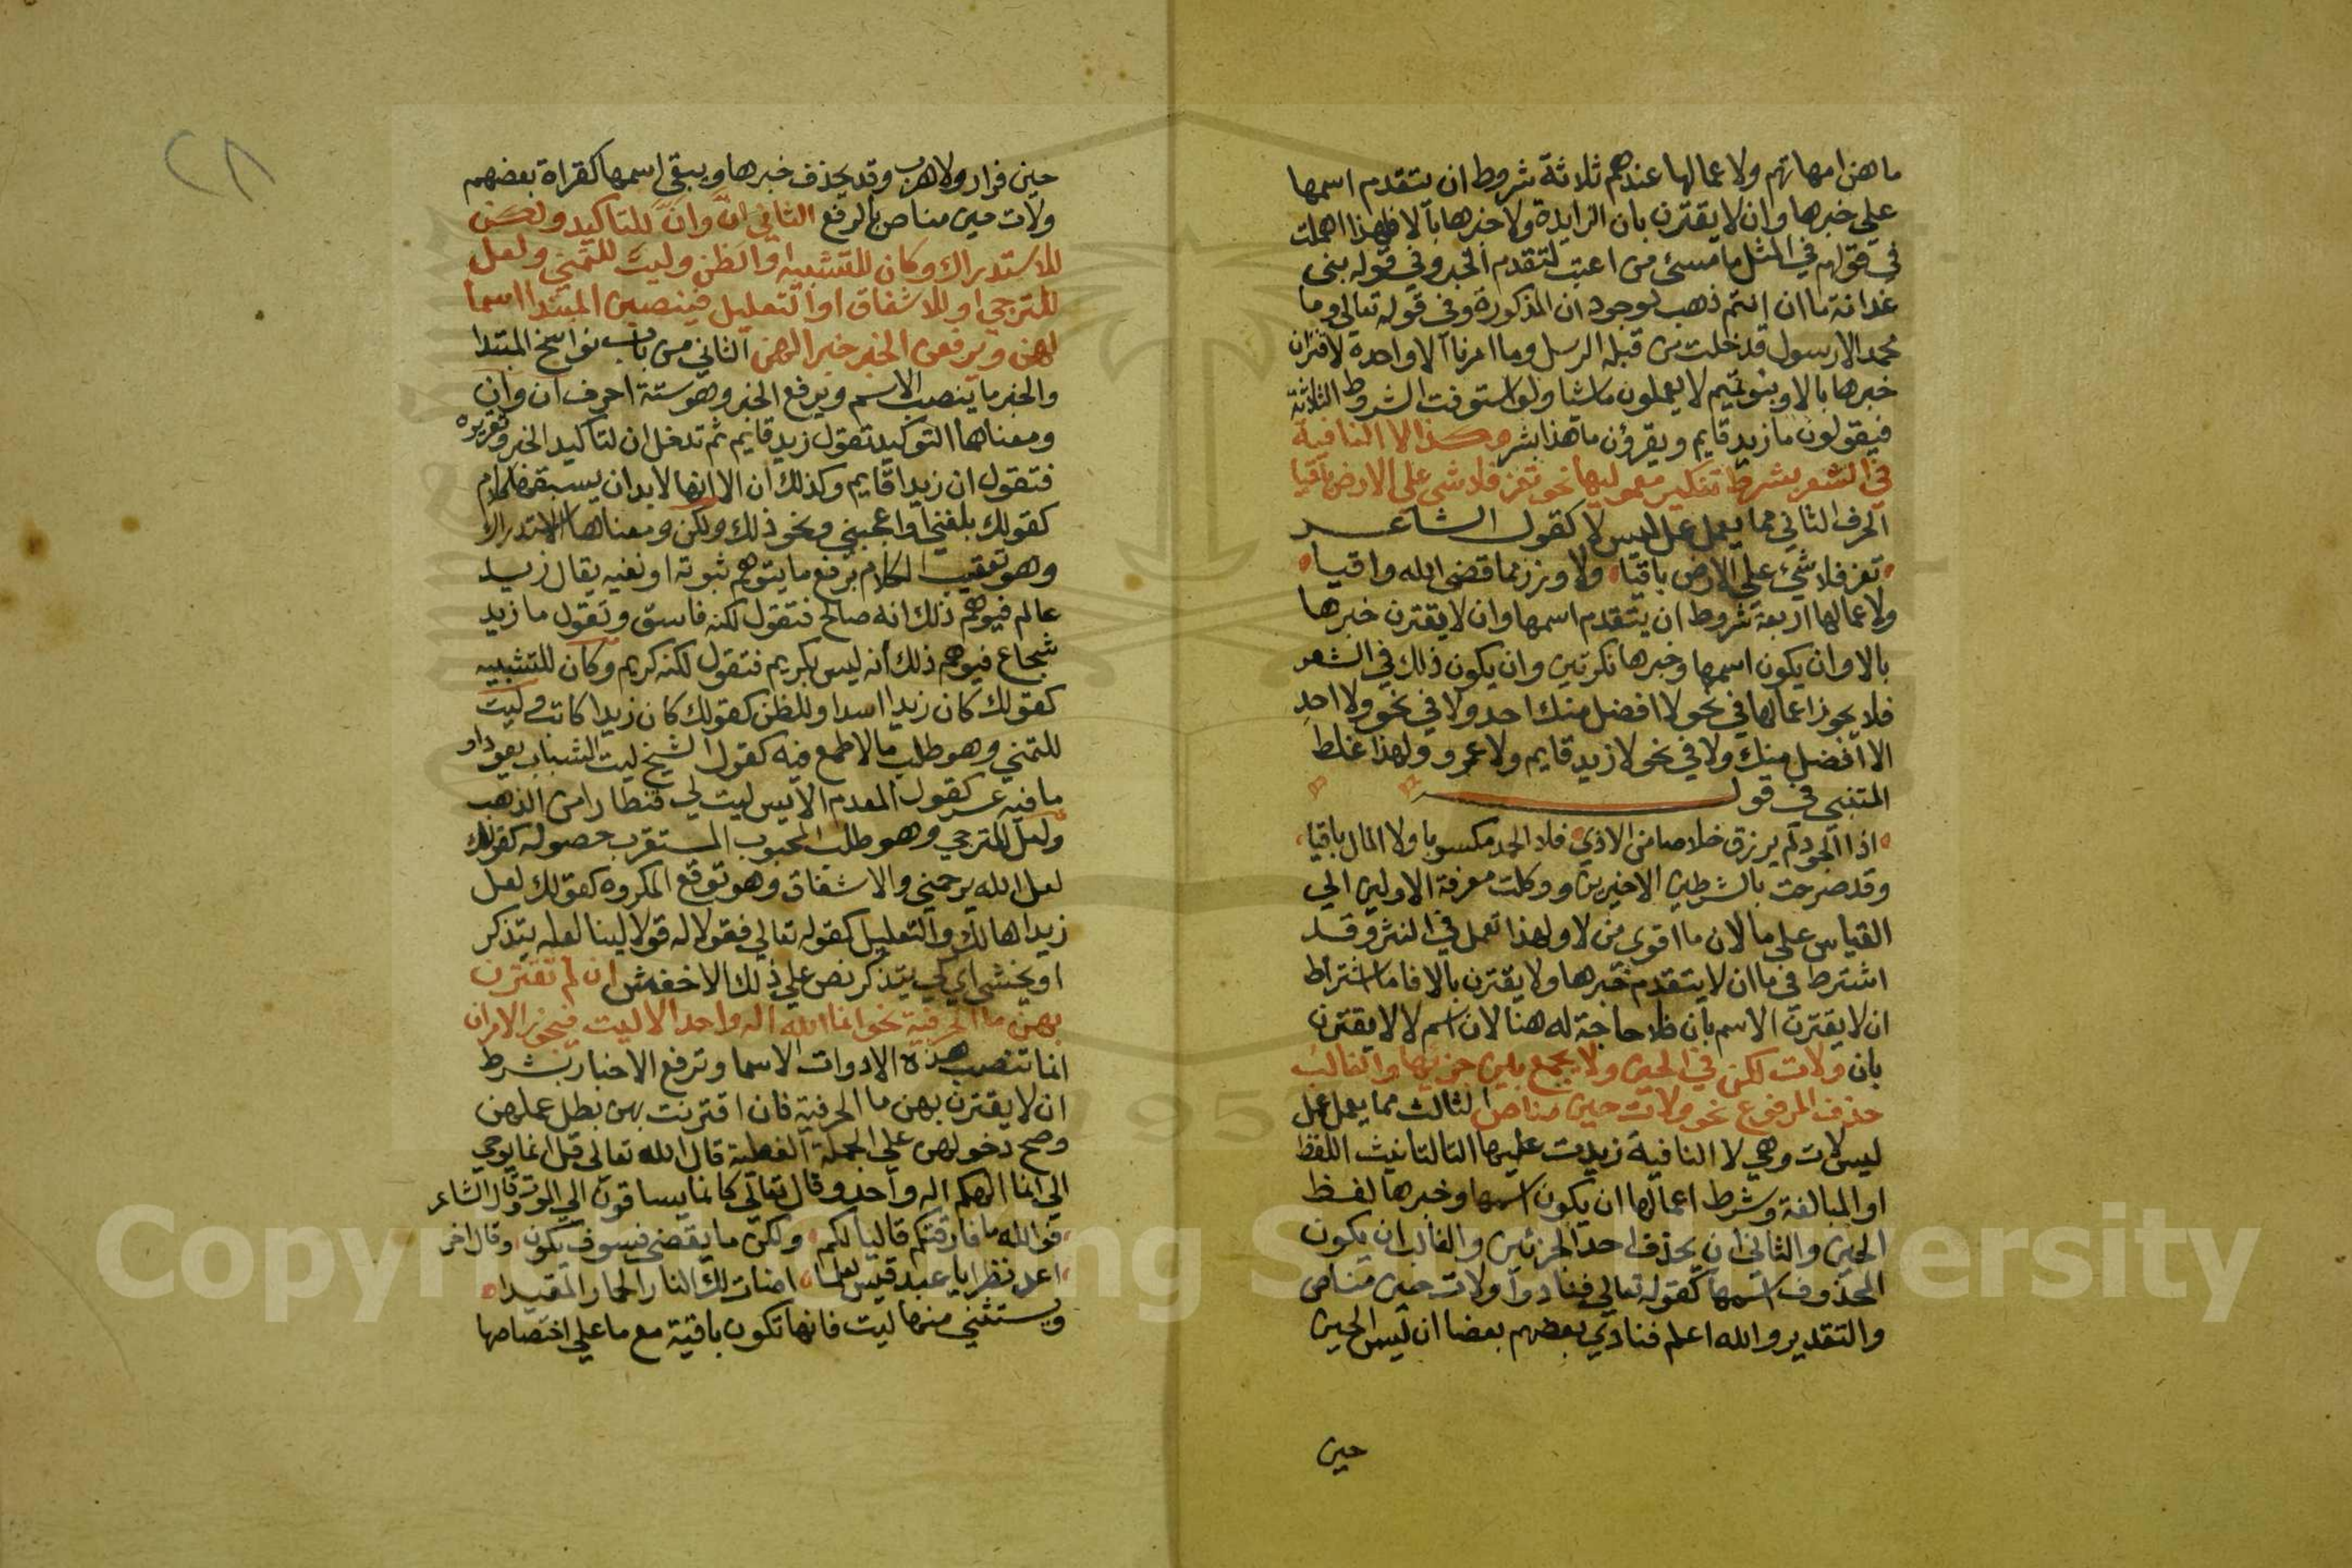 ما هن امهاتهم ولاعمالها عندهم ثلاثة شروط ان يتقدم اسمها
على خبرها وان لا يقترن بان الزايدة ولا خبرها بالا فلهذا اهملت
في قولهم في المثل ما مسئ من اعتب لتقدم الخبر وفي قوله بنى
غدانة ما ان انتم ذهب لوجود ان المذكورة وفي قوله تعالى وما
محمد الا رسول قد خلت من قبله الرسل وما امرنا الا واحدة لاقتران
خبرها بالا وبنو تميم لا يعملون ما شيا ولو استوفت الشروط الثلاثة
فيقولون ما زيد قايم ويقرؤن ما هذا بشر وكذا لا النافية
في الشعر بشرط تنكير معموليها نحو تعز فلا شى على الارض باقيا
الحرف الثاني مما يعمل عمل ليس لا كقول الشاعر
تعز فلا شئ على الارض باقيا ولا وزر مما قضى الله واقيا
ولاعمالها اربعة شروط ان يتقدم اسمها وان لا يقترن خبرها
بالا وان يكون اسمها وخبرها نكرتين وان يكون ذلك في الشعر
فلا يجوز اعمالها في نحو لا افضل منك احد ولا في نحو ولا احد
الا افضل منك ولا في نحو لا زيد قايم ولا عمرو ولهذا غلط
المتنبي في قول
اذا الجود لم يرزق خلاصا من الاذي فلا الحمد مكسوبا ولا المال باقيا
وقد صرحت بالشرطين الاخيرين ووكلت معرفة الاولين الي
القياس على ما لان ما اقوي من لا ولهذا تعمل في النثر وقد
اشترط في ما ان لا يتقدم خبرها ولا يقترن بالا فاما اشتراط
ان لا يقترن الاسم بان فلا حاجة له هنا لان اسم لا لا يقترن
بان ولات لكن في الحين ولا يجمع بين جزيها والغالب
حذف المرفوع نحو ولات حين مناص الثالث مما يعمل عمل
ليس لات وهي لا النافية زيدت عليها التا لتانيث اللفظ
او المبالغة وشرط اعمالها ان يكون اسمها وخبرها لفظ
الحين والثاني ان يحذف احد الجزئين والغالب ان يكون
المحذوف اسمها كقوله تعالي فنادوا ولات حين مناص
والتقدير والله اعلم فنادي بعضهم بعضا ان ليس الحين
حين
٢٨
حين فرار ولا هرب وقد يحذف خبرها ويبقى اسمها كقراة بعضهم
ولات حين مناص بالرفع الثاني ان وان للتاكيد ولكن
للاستدراك وكان للتشبيه او الظن وليت للتمني ولعل
للترجي او للاشفاق او التعليل فينصبن المبتدا اسما
لهن ويرفعن الخبر خبرا لهن الثاني من باب نواسخ المبتدا
والخبر ما ينصب الاسم ويرفع الخبر وهو ستة احرف ان وان
ومعناهما التوكيد تقول زيد قايم ثم تدخل ان لتاكيد الخبر وتقريره
فتقول ان زيدا قايم وكذلك ان الا انها لا بد ان يسبقها كلام
كقولك بلغني او اعجبني ونحو ذلك ولكن ومعناها الاستدراك
وهو تعقيب الكلام برفع ما يتوهم ثبوته او نفيه يقال زيد
عالم فيوهم ذلك انه صالح فتقول لكنه فاسق وتقول ما زيد
شجاع فيوهم ذلك انه ليس بكريم فتقول لكنه كريم وكان للتشبيه
كقولك كان زيدا اسد او للظن كقولك كان زيدا كاتب وليت
للتمني وهو طلب ما لا طمع فيه كقول الشيخ ليت الشباب يعود او
ما فيه عسر كقول المعدم الايس ليت لي قنطارا من الذهب
ولعل للترجي وهو طلب المحبوب المستقرب حصوله كقولك
لعل الله يرحمني والاشفاق وهو توقع المكروه كقولك لعل
زيدا هالك والتعليل كقوله تعالي فقولا له قولا لينا لعله يتذكر
او يخشى اي كي يتذكر نص علي ذلك الاخفش ان لم تقترن
بهن ما الحرفية نحو انما الله اله واحد الا ليت فيجوز الامران
انما تنصب هذه الادوات الاسما وترفع الاخبار بشرط
ان لا يقترن بهن ما الحرفية فان اقترنت بهن بطل عملهن
وصح دخولهن على الجملة الفعلية قال الله تعالى قل انما يوحي
الي انما الهكم اله واحد وقال تعالي كانما يساقون الي الموت وقال الشاعر
فو الله ما فارقتكم قاليا لكم ولكن ما يقضي فسوف يكون وقال اخر
اعد نظرا يا عبد قيس لعلما اضات لك النار الحمار المقيدا
ويستثني منها ليت فانها تكون باقية مع ما علي اختصاصها